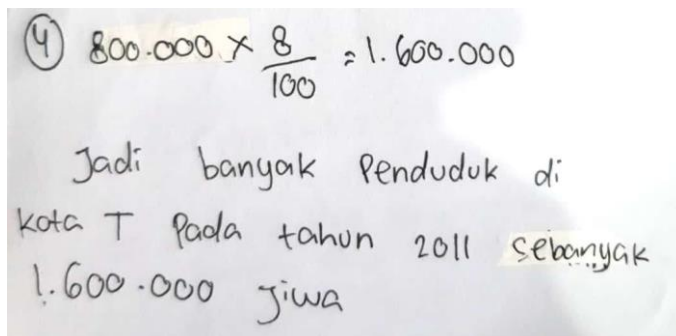 ④ 800.000 × 8/100 = 1.600.000
Jadi banyak Penduduk di
kota T Pada tahun 2011 sebanyak
1.600.000 Jiwa